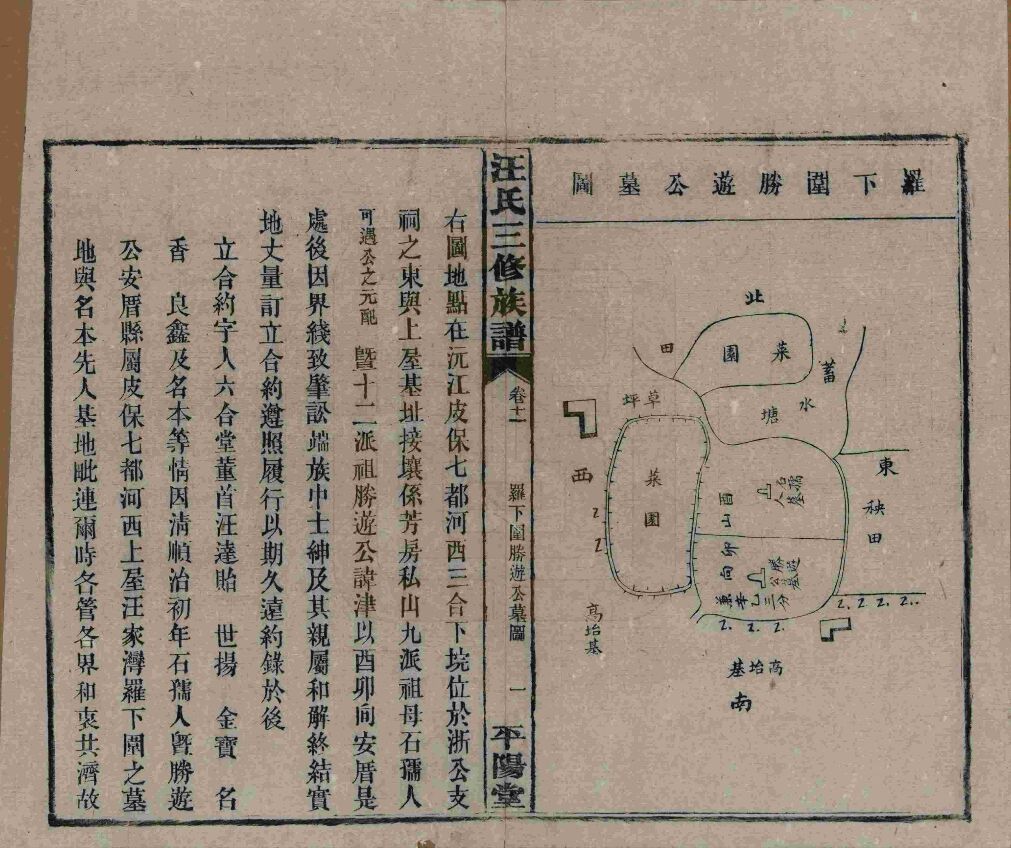 羅下圍勝遊公墓圖
北
菜園
田
蓄
水塘
草坪
西
菜園
東
秧田
石孺人墓
酉山卯向
勝遊公墓
兼辛乙三分
高坮基
高坮基
南
汪氏三修族譜
卷十一
羅下圍勝遊公墓圖
一
平陽堂
右圖地點在沅江皮保七都河西三合下垸位於浙公支
祠之東與上屋基址接壤係芳房私山九派祖母石孺人
可遇公之元配 曁十二派祖勝遊公諱津以酉卯向安厝是
處後因界綫致肇訟端族中士紳及其親屬和解終結實
地丈量訂立合約遵照履行以期久遠約錄於後
立合約字人六合堂董首汪達貽 世揚 金寶 名
香 良鑫及名本等情因清順治初年石孺人曁勝遊
公安厝縣屬皮保七都河西上屋汪家灣羅下圍之墓
地與名本先人基地毗連爾時各管各界和衷共濟故